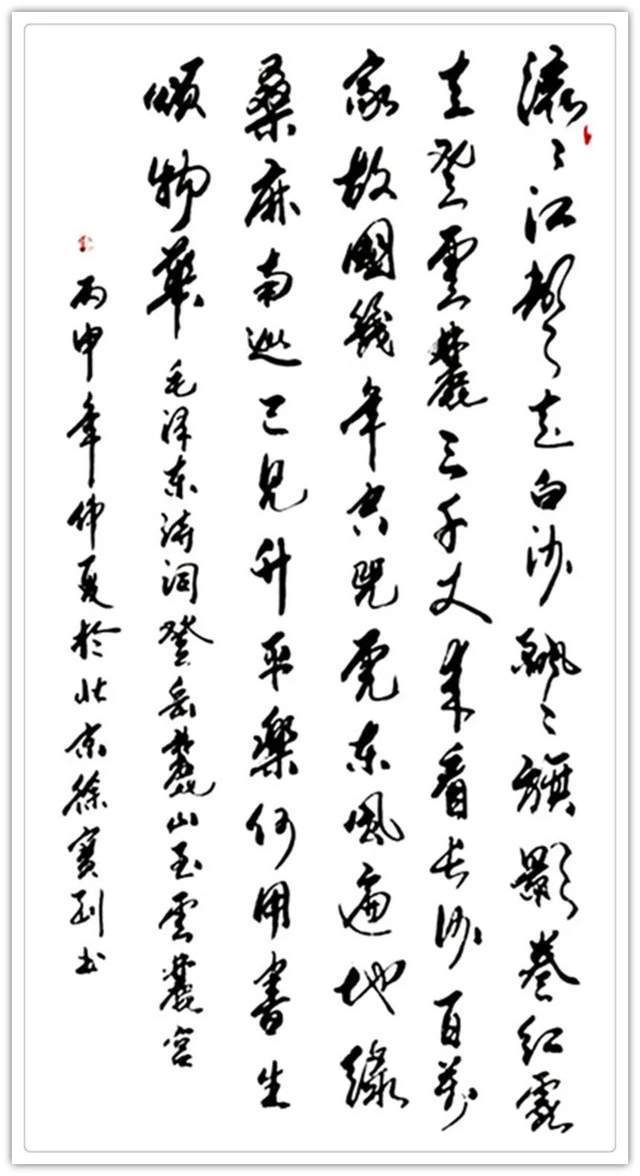 滚〻江聲走白沙飘〻旗影卷红霞
直登雲麓三千丈来看长沙百萬
家故國幾年空兕虎东風遍地绿
桑麻南巡已見升平樂何用書生
頌物華毛泽东诗词登岳麓山至雲麓宫
丙申年仲夏於北京徐寶书